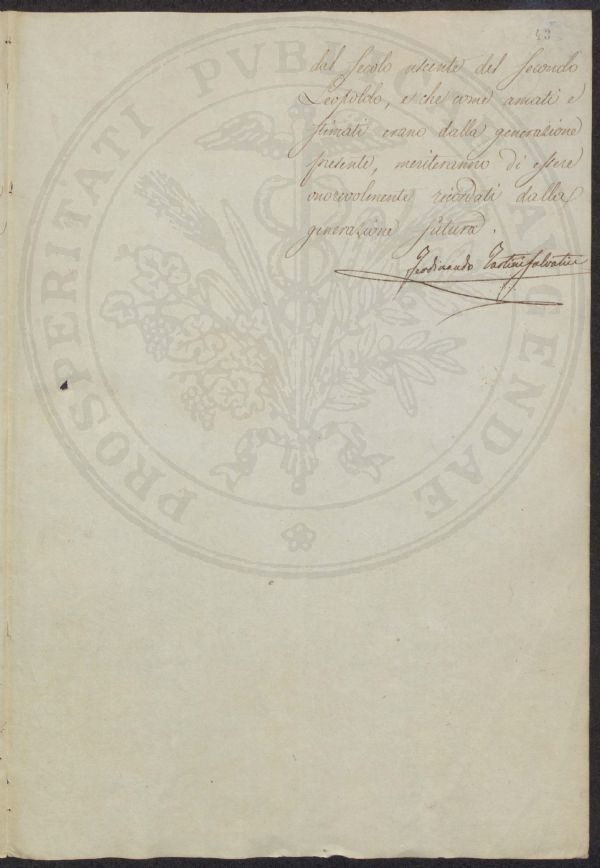 43
dal secolo uscente del secondo
Leopoldo, e che come amati e
stimati erano dalla generazione
presente, meriteranno di essere
onorevolmente ricordati dalla
generazione futura.
Ferdinando Tartini Salvatici
PROSPERITATI PVBLICAE AVGENDAE